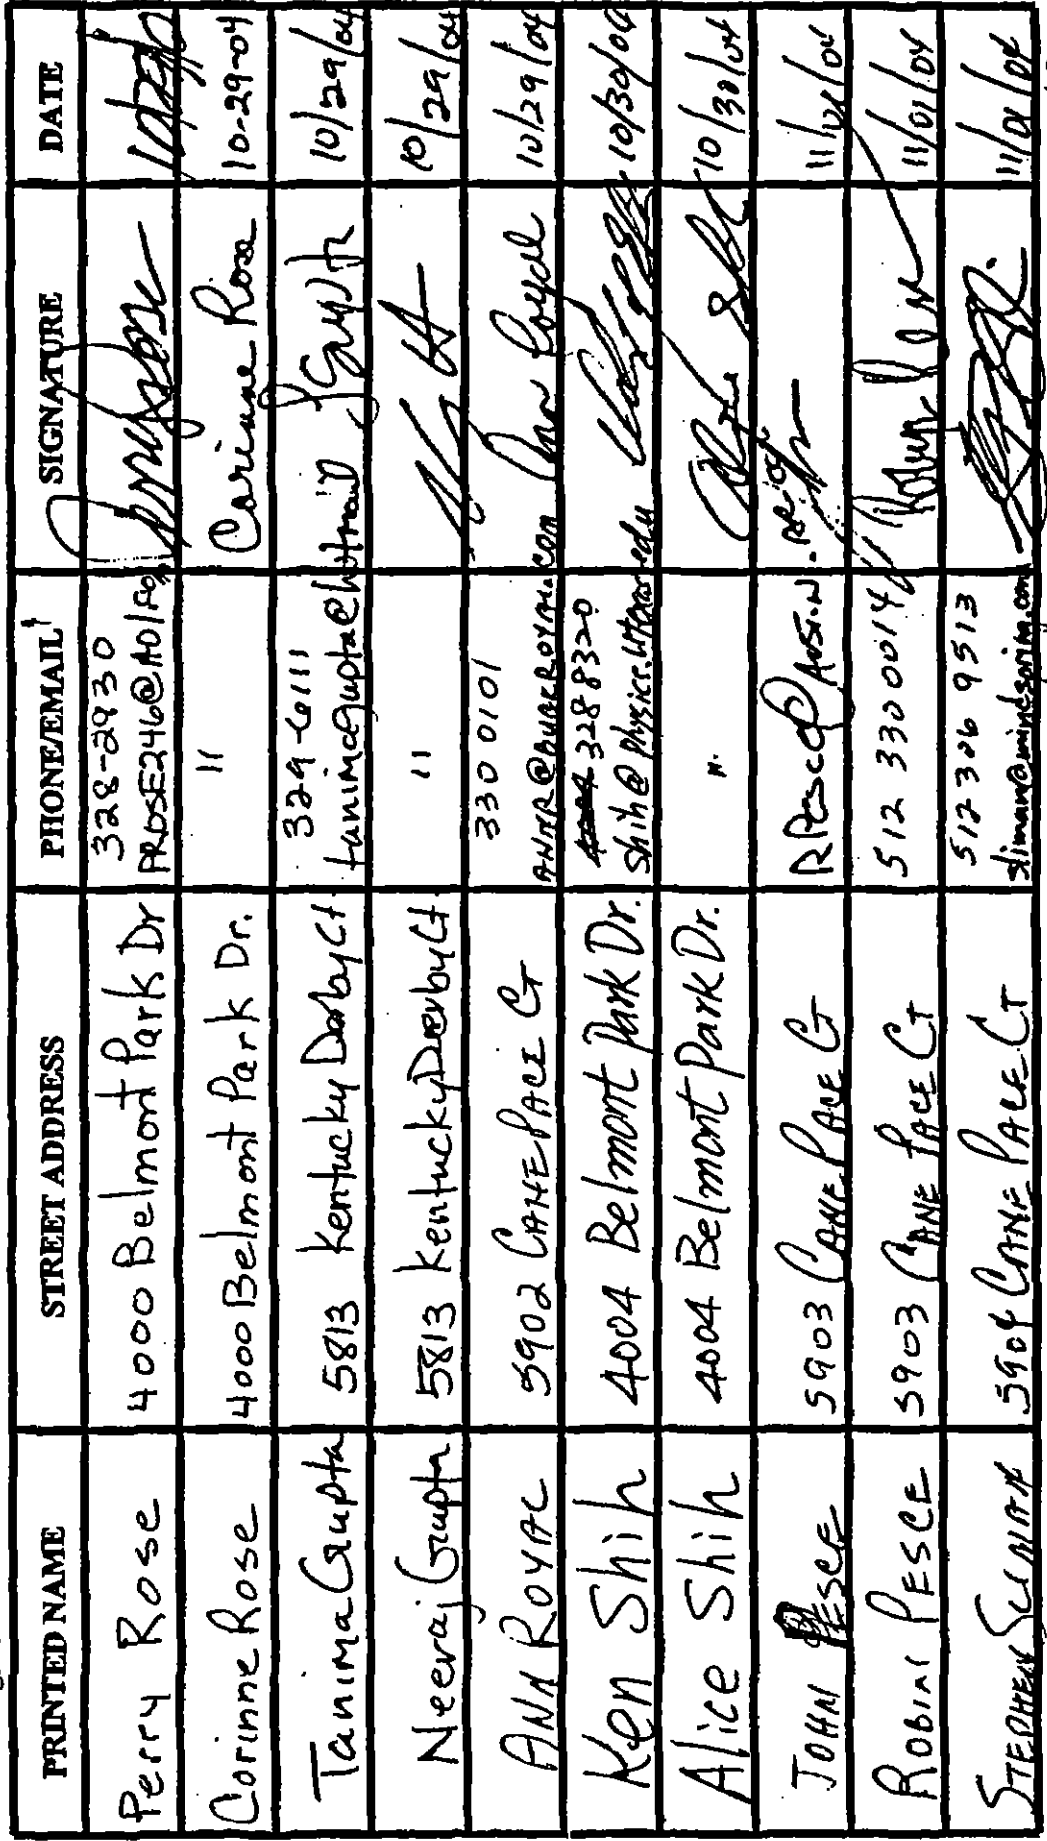 PRINTED NAME STREET ADDRESS PHONE/EMAIL SIGNATURE DATE
Perry Rose 4000 Belmont Park Dr 328-2930
PROSE246@
Corinne Rose 4000 Belmont Park Dr. " Corinne Rose 10-29-04
Tanima Gupta 5813 Kentucky Derby Ct 329-6111 10/29/04
tanimagupta@hotmail
Neeraj Gupta 5813 Kentucky Derby Ct. " 10/29/04
ANN ROYAL 5902 CANE PACE CT 330 0101 10/29/04
Ken Shih 4004 Belmont Park Dr. 328 8320 10/30/04
Shih@physics.utexas.edu
Alice Shih 4004 Belmont Park Dr. " 10/30/04
JOHN PESCE 5903 CANE PACE CT RPesce@AUSTIN.RR. 11/01/04
ROBIN PESCE 5903 CANE PACE CT 512 330 0014 11/01/04
STEPHEN 5904 CANE PACE CT 512 306 9513 11/01/04